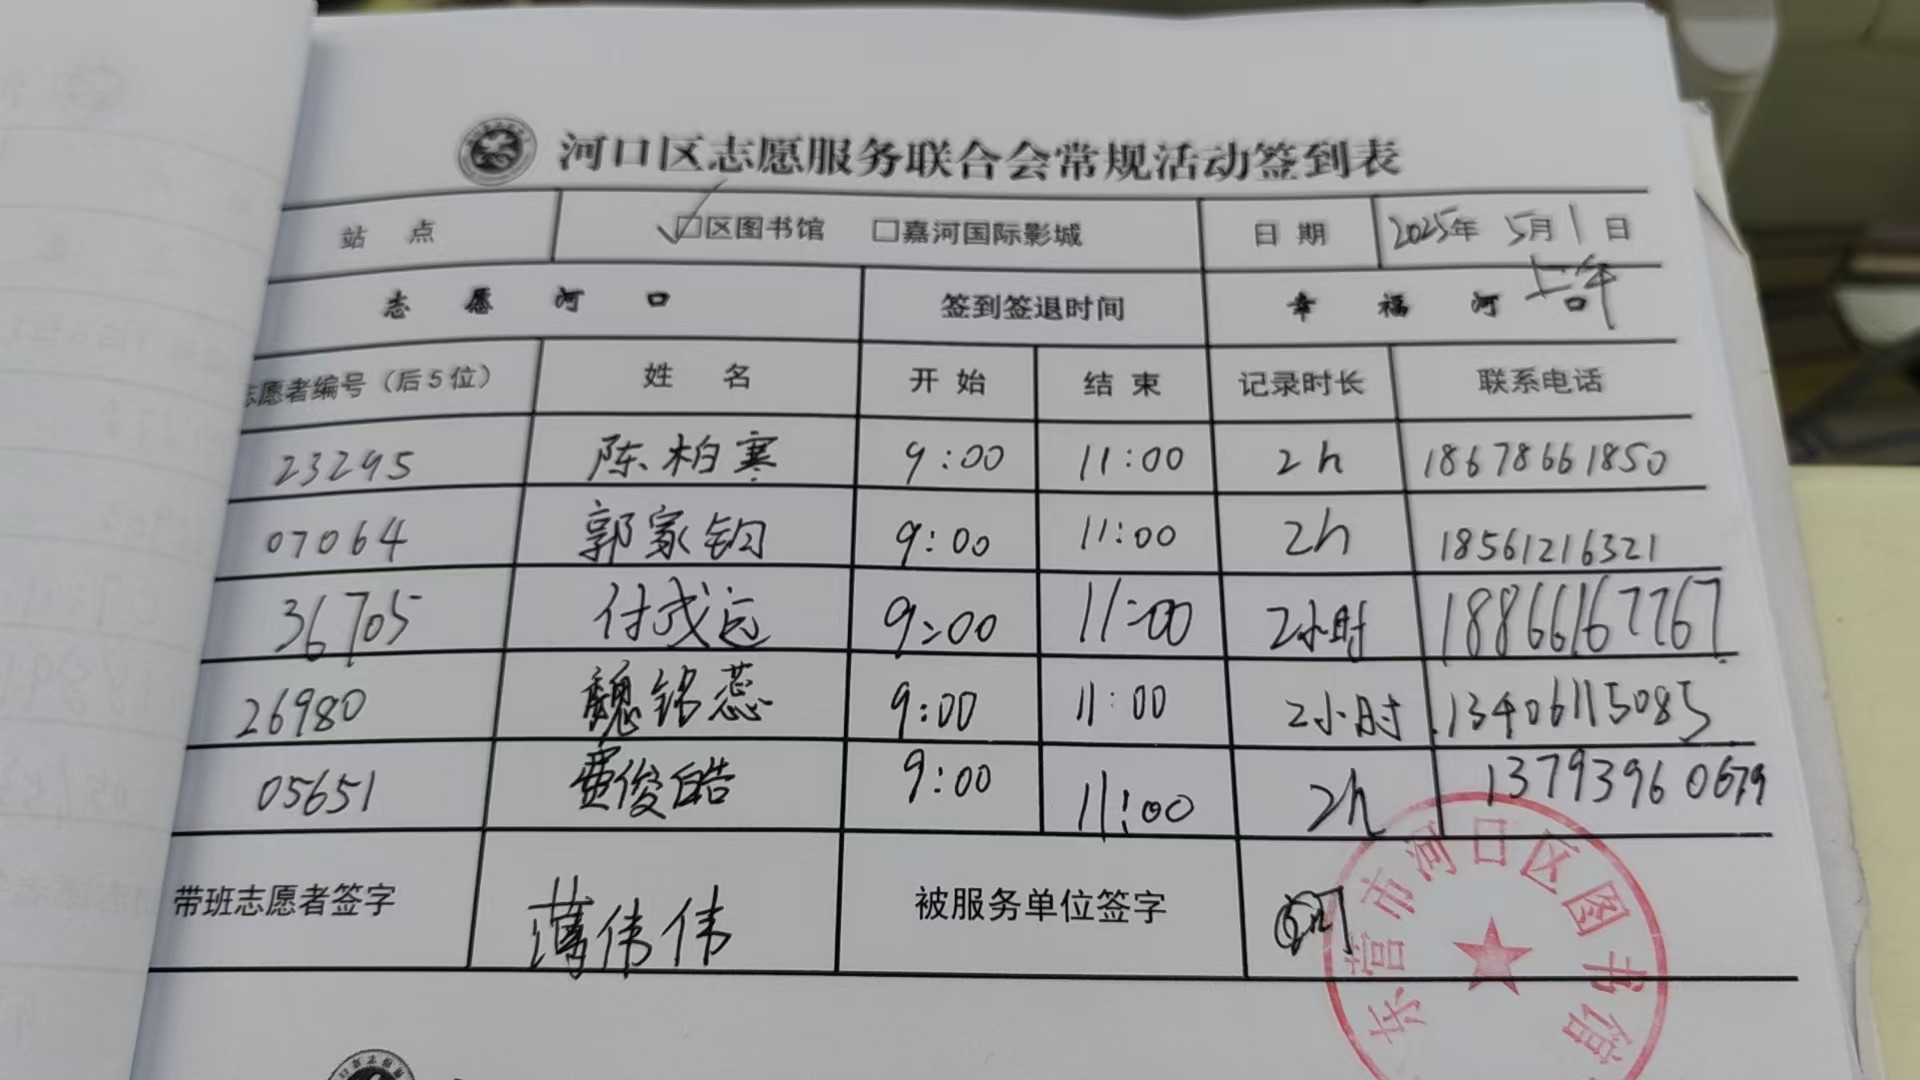 河口区志愿服务联合会常规活动签到表
站 点 ☑区图书馆 □嘉河国际影城 日 期 2025年 5月1日
上午
志 愿 河 口 签到签退时间 幸 福 河 口
志愿者编号（后5位） 姓 名 开 始 结 束 记录时长 联系电话
23295 陈柏寒 9:00 11:00 2h 18678661850
07064 郭家钧 9:00 11:00 2h 18561216321
36705 付成远 9:00 11:00 2小时 18866167767
26980 魏铭蕊 9:00 11:00 2小时 13406115085
05651 费俊皓 9:00 11:00 2h 13793960679
带班志愿者签字 薄伟伟 被服务单位签字
东营市河口区图书馆